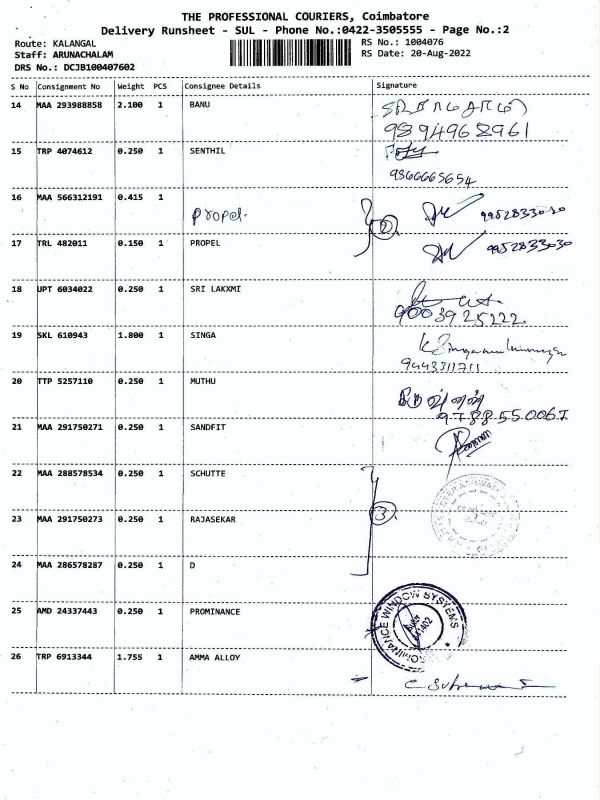 THE PROFESSIONAL COURIERS, Coimbatore
Delivery Runsheet - SUL - Phone No.:0422-3505555 - Page No.:2
Route: KALANGAL RS No.: 1004076
Staff: ARUNACHALAM RS Date: 20-Aug-2022
DRS No.: DCJB100407602
S No Consignment No Weight PCS Consignee Details Signature
14 MAA 293988858 2.100 1 BANU
9894968961
15 TRP 4074612 0.250 1 SENTHIL
9366665654
16 MAA 566312191 0.415 1 propel. 2 9952833030
17 TRL 482011 0.150 1 PROPEL 9952833030
18 UPT 6034022 0.250 1 SRI LAKXMI
9003925222
19 SKL 610943 1.800 1 SINGA
9443311711
20 TTP 5257110 0.250 1 MUTHU
9788550067
21 MAA 291750271 0.250 1 SANDFIT
22 MAA 288578534 0.250 1 SCHUTTE
23 MAA 291750273 0.250 1 RAJASEKAR 3
24 MAA 286578287 0.250 1 D
25 AMD 24337443 0.250 1 PROMINANCE PROMINANCE WINDOW SYSTEMS
26 TRP 6913344 1.755 1 AMMA ALLOY